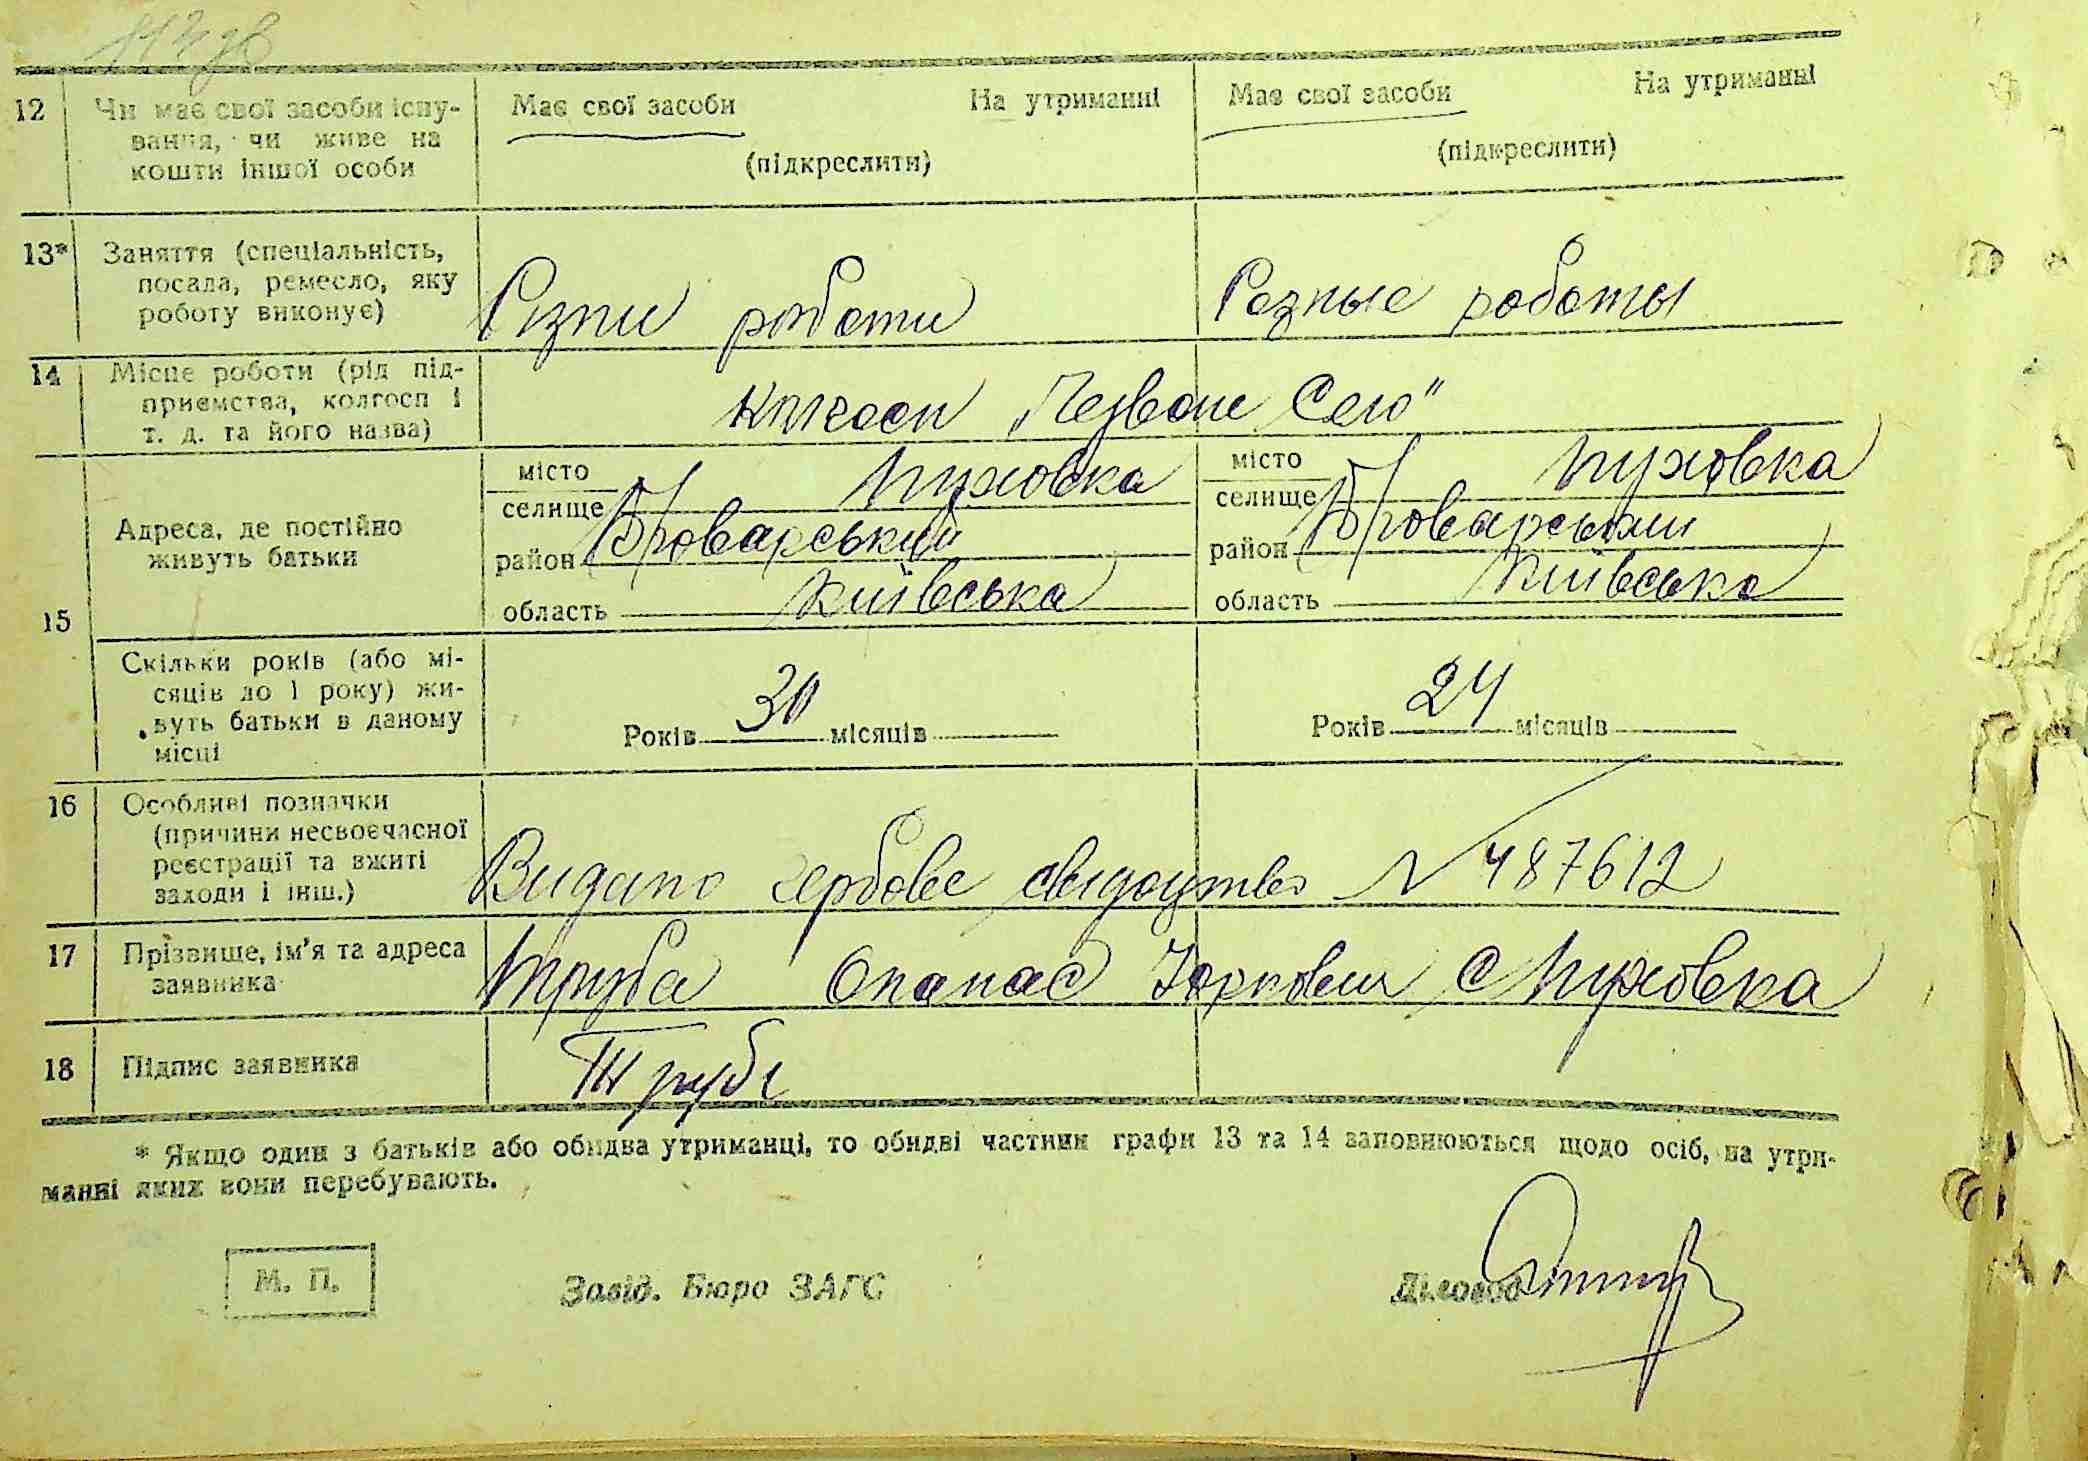 12 Чи має свої засоби існу-
вання, чи живе на
кошти іншої особи
Має свої засоби На утриманні
(підкреслити)
Має свої засоби На утриманні
(підкреслити)
13* Заняття (спеціальність,
посада, ремесло, яку
роботу виконує)
Різни роботи
Розные роботы
14 Місце роботи (рід під-
приємства, колгосп і
т. д. та його назва)
Колгосп „Червоне Село"
15
Адреса, де постійно
живуть батьки
місто
селище Пуховка
район Броварський
область Київська
місто
селище Пуховка
район Броварський
область Київська
Скільки років (або мі-
сяців до 1 року) жи-
вуть батьки в даному
місці
Років 30 місяців
Років 24 місяців
16 Особливі позначки
(причини несвоєчасної
реєстрації та вжиті
заходи і інш.)
Видано гербове свідоцтво № 487612
17 Прізвище, ім'я та адреса
заявника
Труба Опанас Юркович с Пуховка
18 Підпис заявника
Труба
* Якщо один з батьків або обидва утриманці, то обидві частини графи 13 та 14 заповнюються щодо осіб, на утри-
манні яких вони перебувають.
М. П.
Завід. Бюро ЗАГС
Діловод